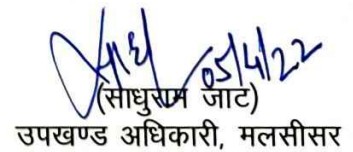 05/4/22
(साधुराम जाट)
उपखण्ड अधिकारी, मलसीसर